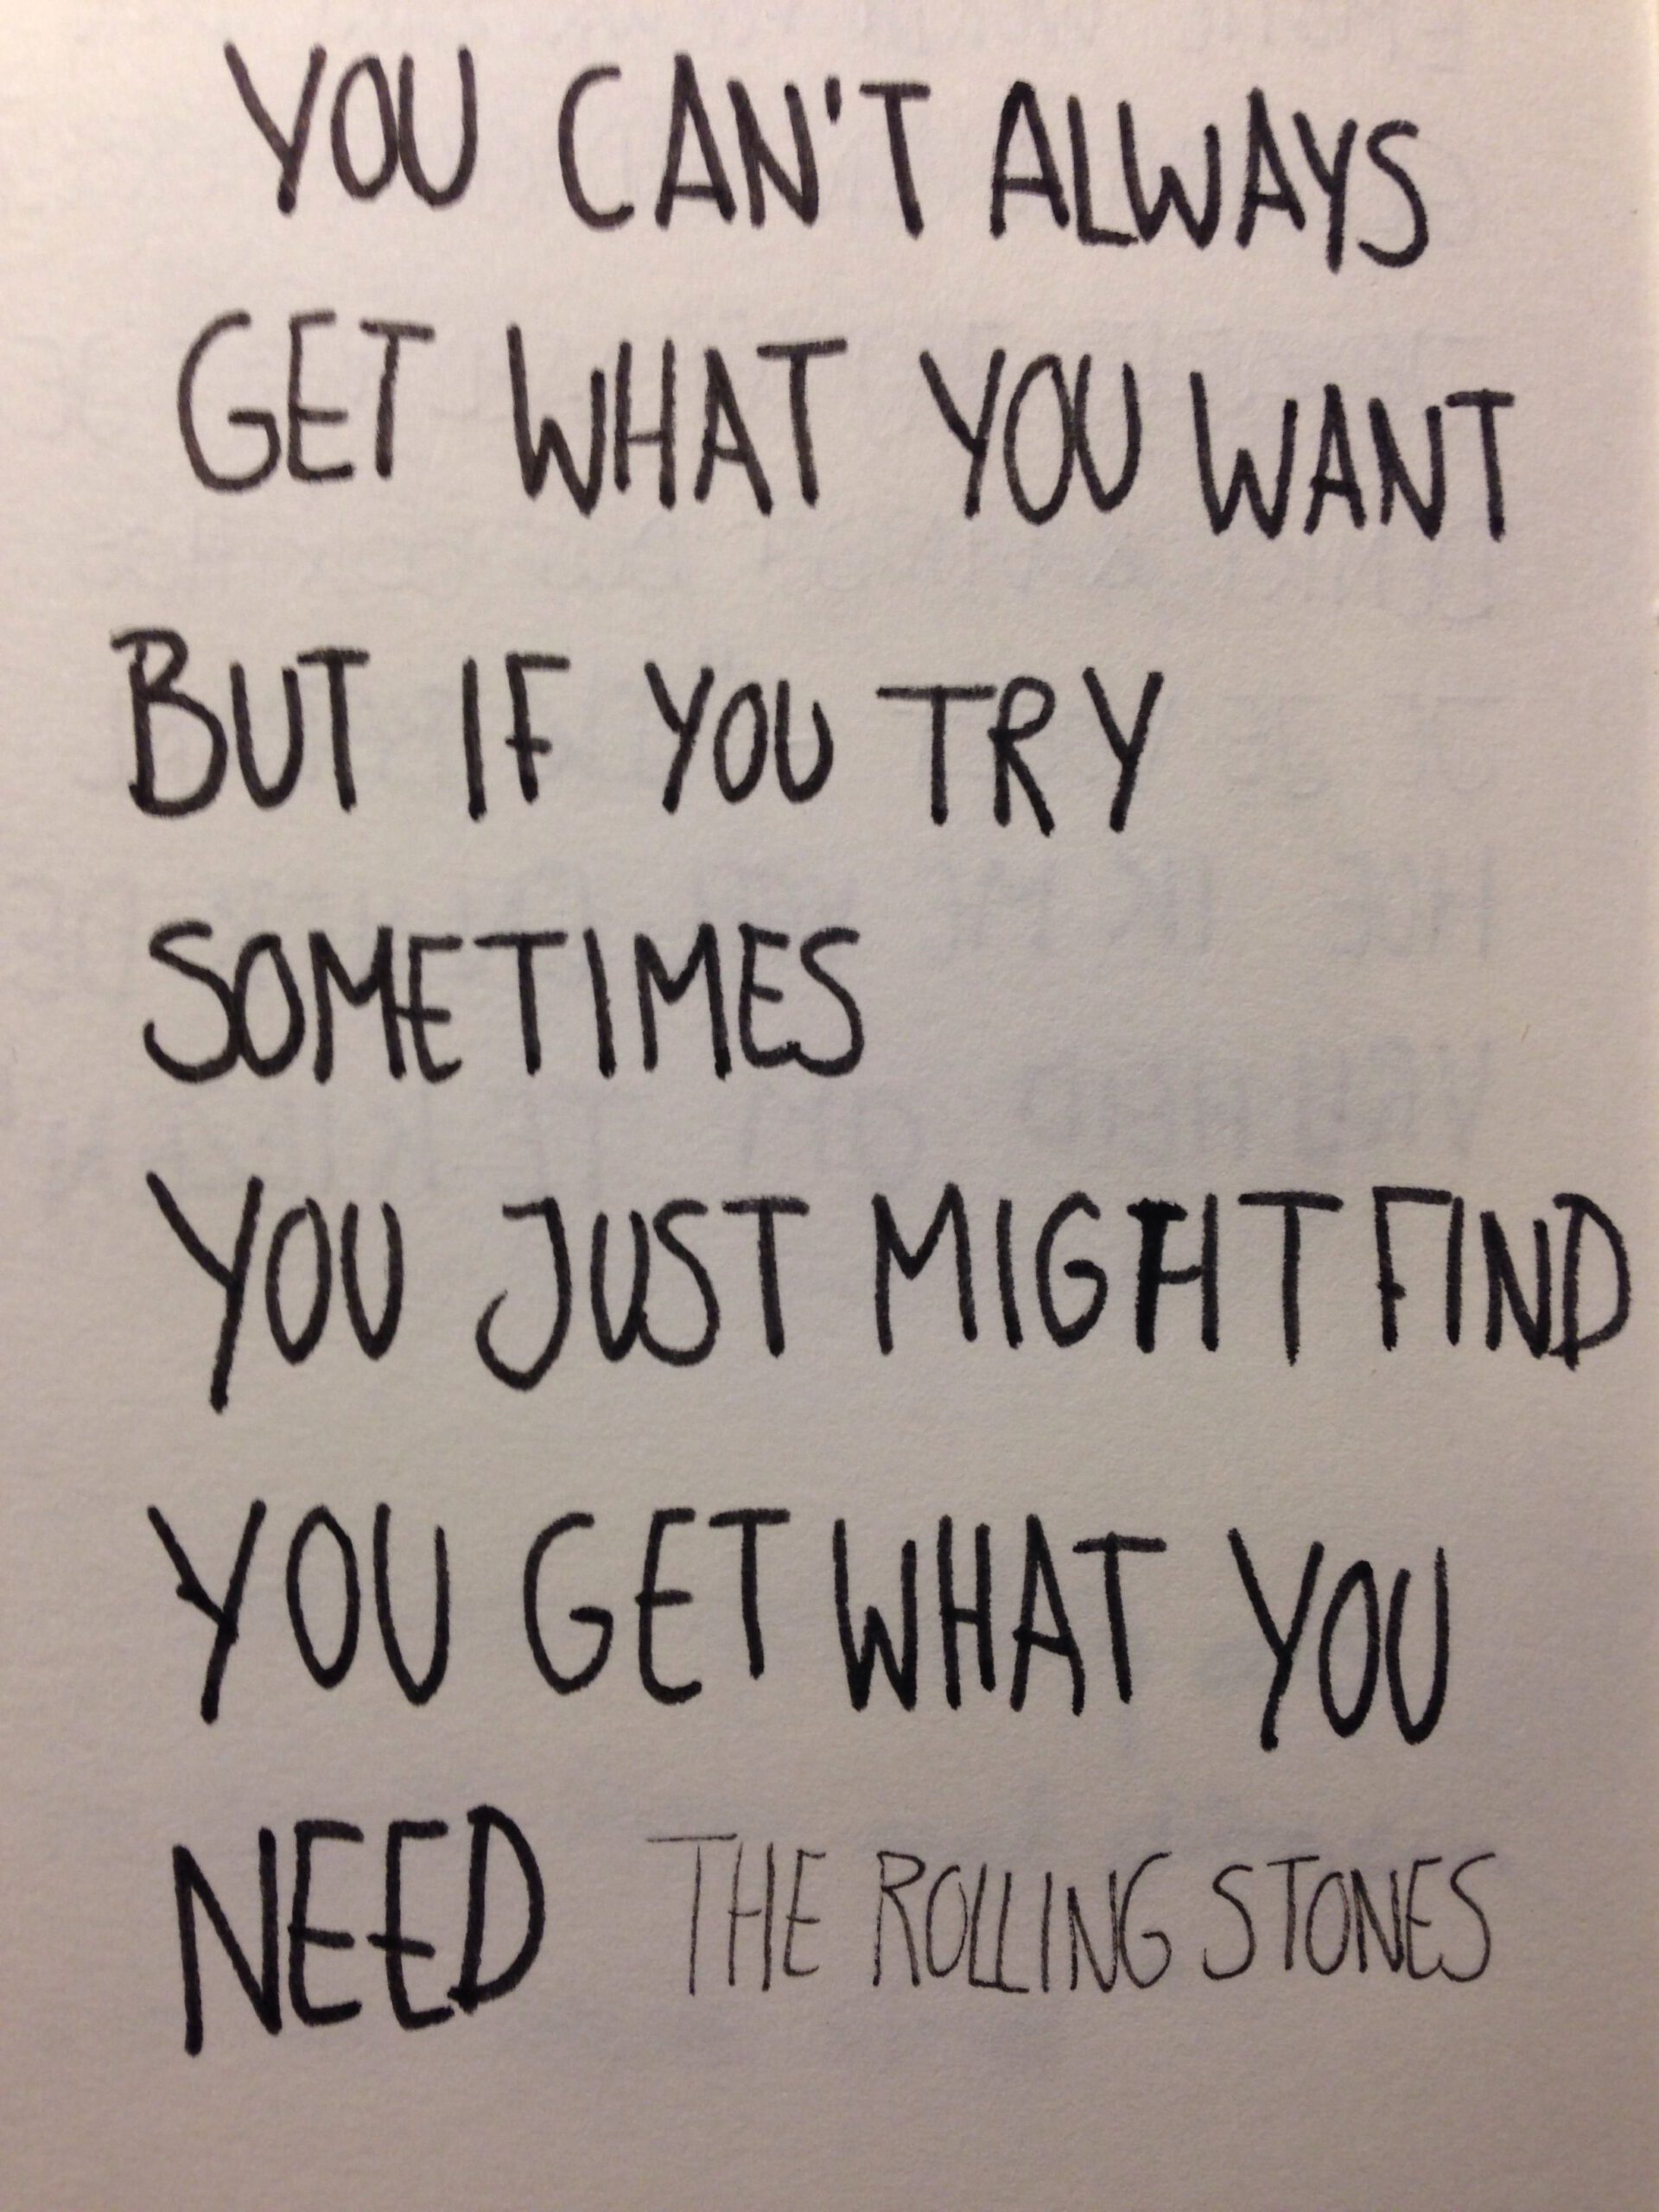 YOU CAN'T ALWAYS
GET WHAT YOU WANT
BUT IF YOU TRY
SOMETIMES
YOU JUST MIGHT FIND
YOU GET WHAT YOU
NEED THE ROLLING STONES